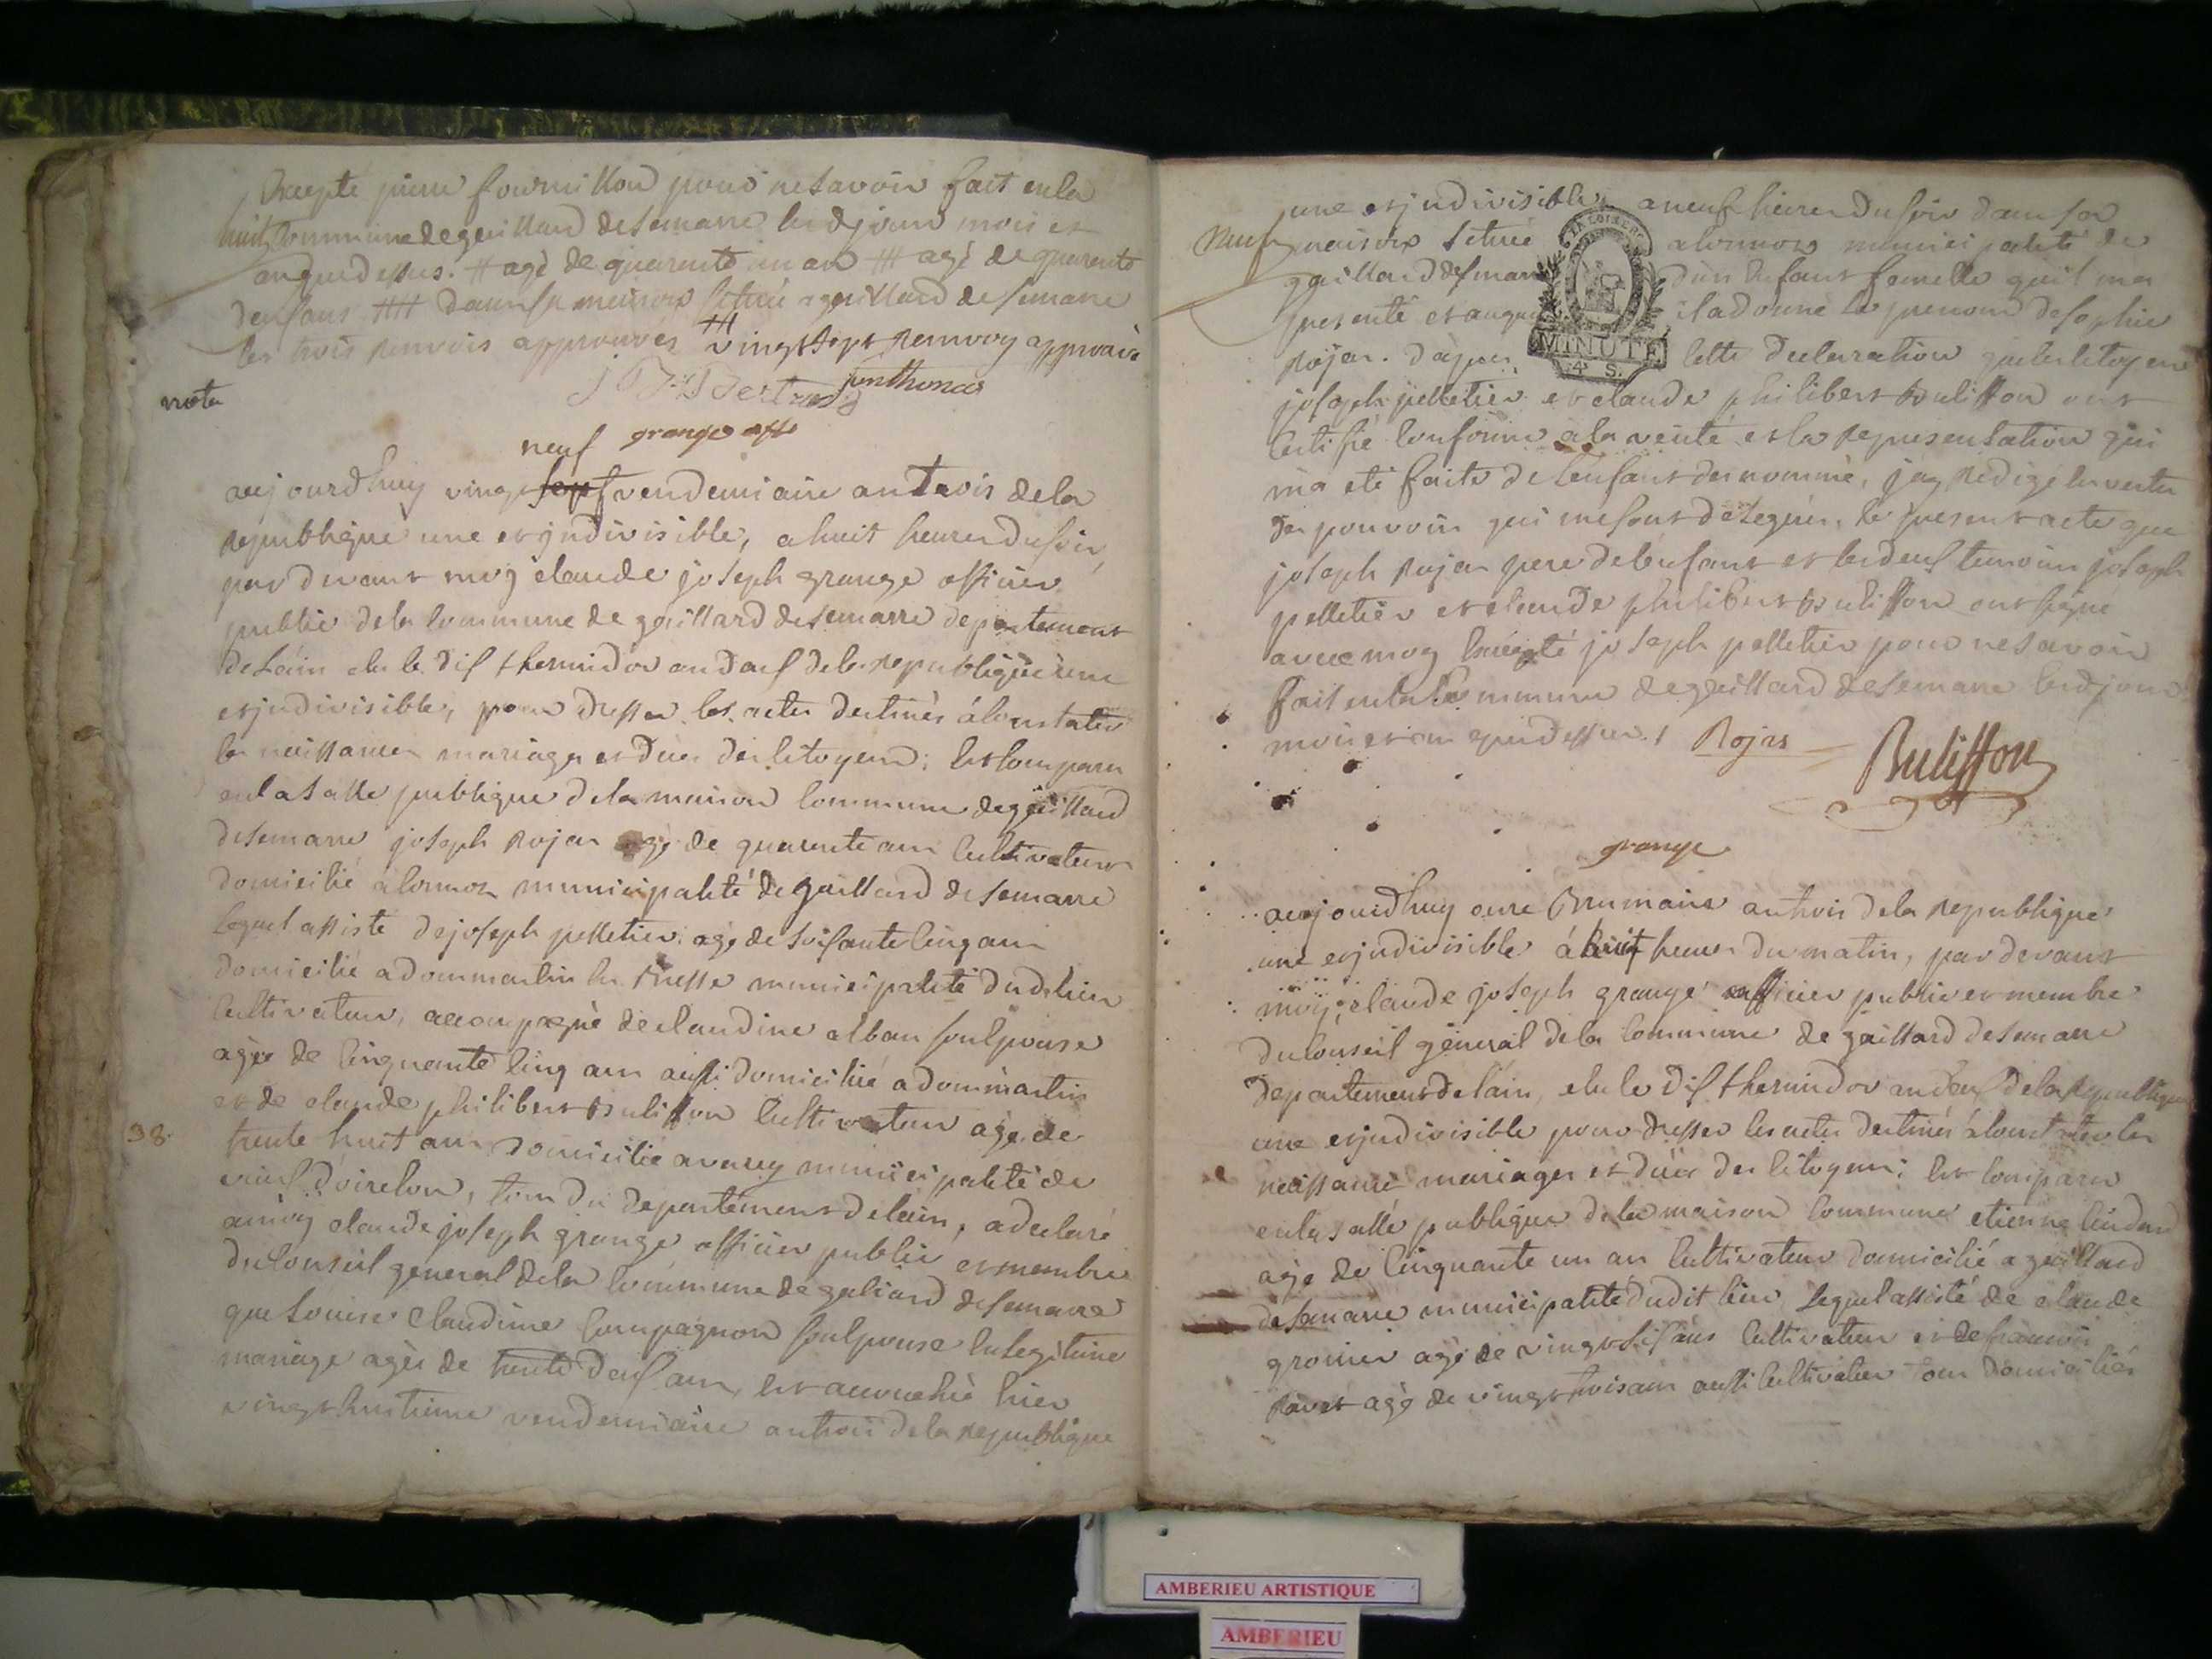 Excepté pierre fournillon pour ne savoir fait en la
huit Commune de gaillard de semarre lesd jour mois et
an que dessus. # agé de quarente un an ## agé de quarente
deuf ans ### dans sa maison située a gaillard de semarre
les trois renvois approuvés vingt sept renvoy approuvé
J B Bertrand janthonas
nota
grange off
neuf
aujourdhuy vingt sept vendemiaire an trois dela
republique une et jndivisible, a huit heures du soir,
par devant moy claude joseph grange officier
public dela Commune de gaillard desemarre departement
de Lain elu le dif thermidor an deuf dela republique une
et jndivisible, pour dresser les actes destinés á Constater
les naissances mariages et deces des Citoyens; Est Comparu
en la salle publique dela maison Commune de gaillard
desemarre joseph rojas agé de quarente ans Cultivateur
domicilié a lonnos municipalité de gaillard de semarre
Lequel assisté de joseph pelletier agé de soifante Cinq ans
domicilié a dommartin les Bresse municipalité dudit lieu
Cultivateur, accompagné de claudine alban son epouse
agée de Cinquante Cinq ans aussi domicilié a dommartin
et de claude philibert Bulisson Cultivateur agé de
38. trente huit ans domicilié a municipalité de
tous du departement de lain, a declaré
a moy claude joseph grange officier public et membre
du Conseil general dela Commune de galiard desemarre
que Louise Claudine Compagnon son epouse en legitime
mariage agée de trente deuf ans, est accouchée hier
vingt huitieme vendemiaire an trois dela republique
une et jndivisible, a neuf heures du soir dans sa
neuf maison située a lonnos municipalité de
gaillard desemarre dun Enfant femelle quil ma
presenté et auquel il a donné le prenom de sophie
MINUTE
4 S.
rojas. dapres Cette declaration que les Citoyens
joseph pelletier et claude philibert Bulisson ont
Certifié Conforme a la verité et la representation qui
ma eté faite de lenfant denommé, jay redigé en vertu
des pouvoirs qui me sont delegués, le present acte que
joseph rojas pere de lenfant et les deuf temoins joseph
pelletier et claude philibert Bulisson ont signé
avec moy Excepté joseph pelletier pour ne savoir
fait en la Commune de gaillard desemarre lesd jour
mois et an que dessus. Rojas Bulisson
grange
aujourdhuy onze Brumaire an trois dela republique
une et jndivisible á huit heures du matin, par devant
moy, claude joseph grange officier public et membre
du Conseil général dela Commune de gaillard desemarre
departement de lain, elu le dif thermidor an deuf dela republique
une et jndivisible pour dresser les actes destinés á Constater les
naissance mariages et deces des Citoyens; Est Comparu
en la salle publique dela maison Commune etienne
agé de Cinquante un an Cultivateur domicilié a gaillard
desemarre municipalité dudit lieu, Lequel assisté de claude
agé de vingt sif ans Cultivateur et de francois
agé de vingt trois ans aussi Cultivateur tous domiciliés
AMBERIEU ARTISTIQUE
AMBERIEU